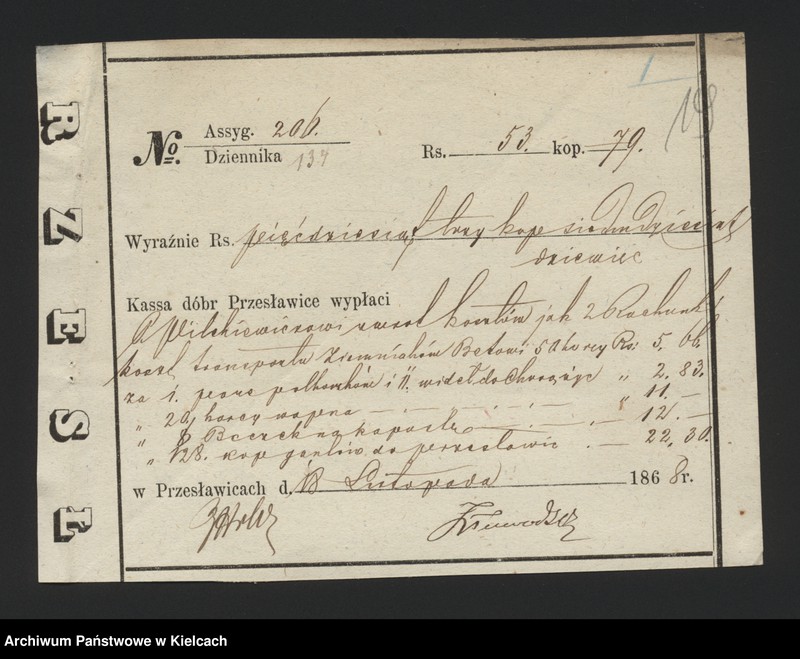 RZESŁ
1
19
No.
Assyg. 206.
Dziennika 134
Rs. 53. kop. 79.
Wyraźnie Rs. pięćdziesiąt trzy kope siedmdziesiąt
dziewięć
Kassa dóbr Przesławice wypłaci
zwrot kosztów jak 2 Rachunki
koszt transportu Ziemniaków 50 korcy Rs: 5, 06.
za 1. parę i wideł do " 2, 83.
" 20, korcy wapna " 11. –
" 8 Beczek na kapustę " 12. –
" 128. kop gontów do przesławic – 22, 30.
w Przesławicach d. 18 Listopada 1868 r.
Archiwum Państwowe w Kielcach